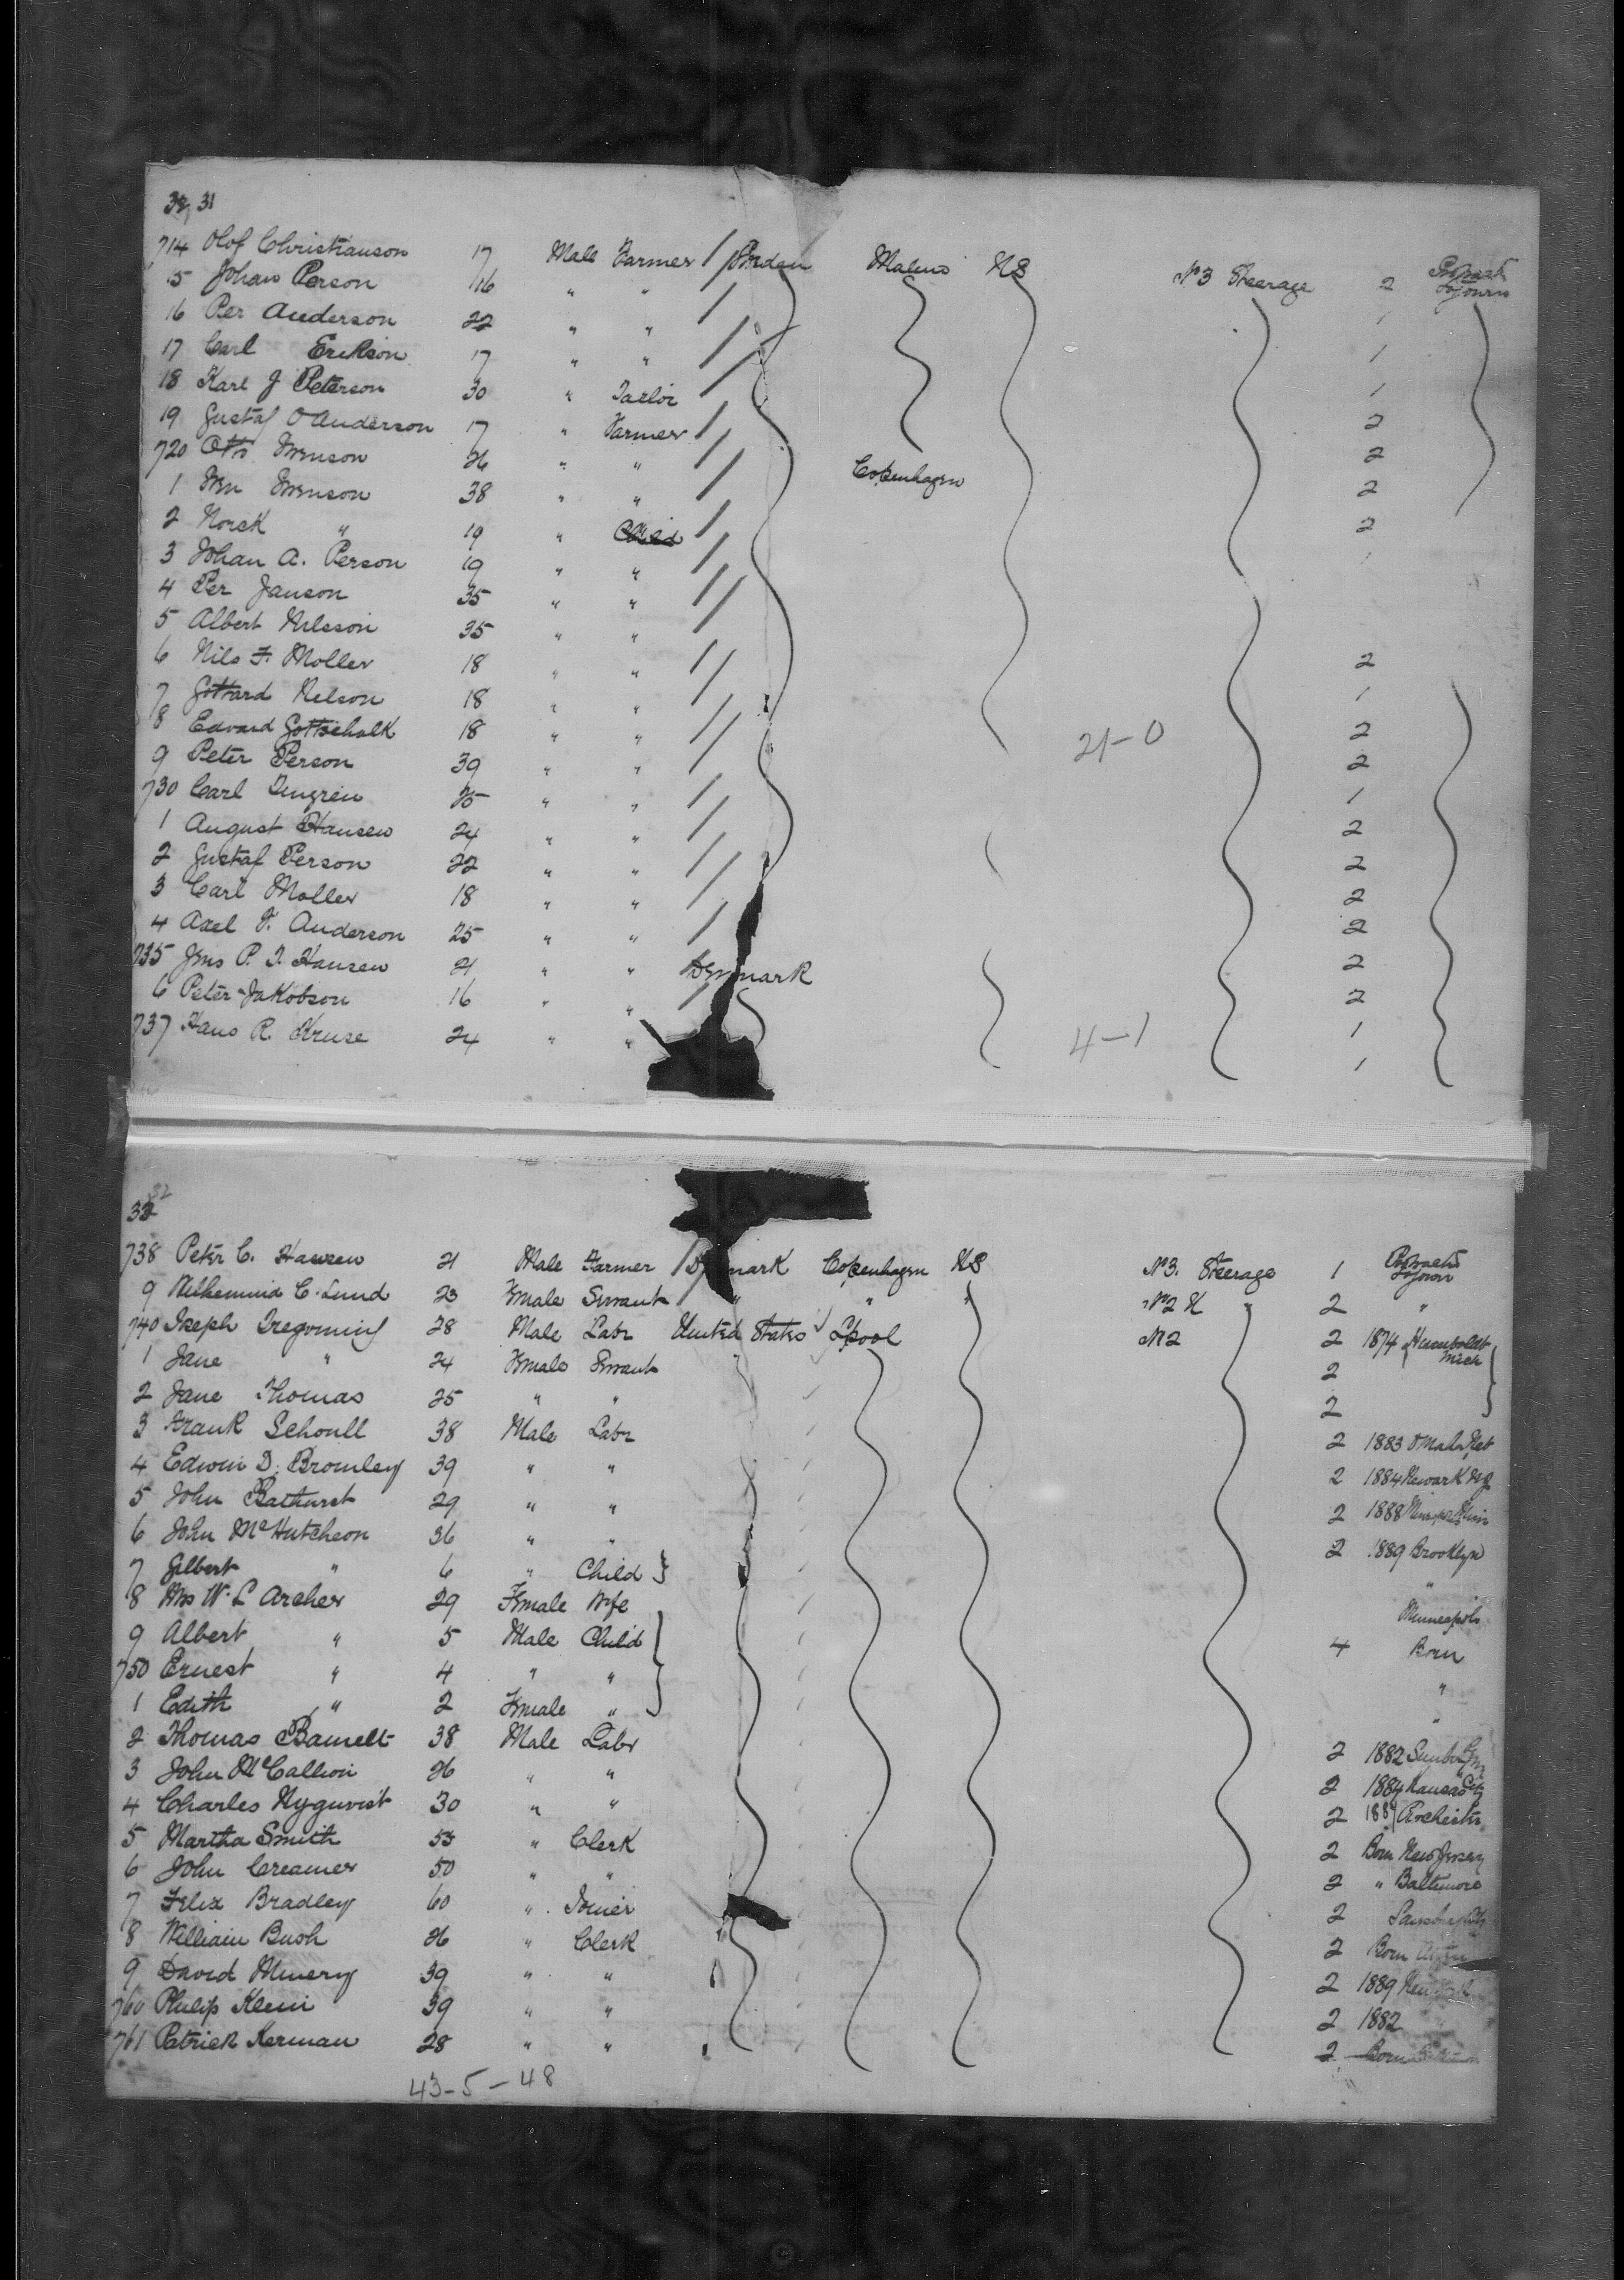 31
714 Olof Christianson 17 Male Farmer Sweden Malmo US No 3 Steerage 2 Protracted Sojourn
15 Johan Person 16 " " 1
16 Per Anderson 22 " " 1
17 Carl Erikson 17 " " 1
18 Karl J Peterson 30 " Tailor 2
19 Gustaf O Anderson 17 " Farmer 2
720 Otto Swenson 26 " " Copenhagen 2
1 Wm Swenson 38 " " 2
2 Norsk " 19 " Child
3 Johan A. Person 19 " "
4 Per Janson 35 " "
5 Albert Nilsson 35 " "
6 Nils F. Moller 18 " " 2
7 Gottard Nelson 18 " " 1
8 Edvard Gottschalk 18 " " 21-0 2
9 Peter Person 39 " " 2
730 Carl 25 " " 1
1 August Hansen 24 " " 2
2 Gustaf Person 22 " " 2
3 Carl Moller 18 " " 2
4 Axel F. Anderson 25 " " 2
735 Jens P. J. Hansen 21 " " Denmark 2
6 Peter Jakobson 16 " " 2
737 Hans R. Kruse 24 " " 4-1 1
1
32
738 Peter C. Hansen 21 Male Farmer Denmark Copenhagen US No 3. Steerage 1 Protracted Sojourn
9 Wilhemina C. Lund 23 Female Servant " " " No 2 2 "
740 Joseph 28 Male Labr United States Lpool No 2 2 1874 Humboldt Mich
1 Jane " 24 Female Servant 2
2 Jane Thomas 25 " " 2
3 Frank Schoull 38 Male Labr 2 1883 Omaha Neb
4 Edwin D. Bromley 39 " " 2 1884 Newark NJ
5 John Bathurst 29 " " 2 1888
6 John McHutcheon 36 " " 2 1889 Brooklyn
7 Gilbert " 6 " Child "
8 Mrs W. L Archer 29 Female Wife Minneapolis
9 Albert " 5 Male Child 4 Born
750 Ernest " 4 " " "
1 Edith " 2 Female " "
2 Thomas 38 Male Labr 2 1882
3 John McCallion 26 " " 2 1884 Kansas City
4 Charles Nyquvist 30 " " 2
5 Martha Smith 55 " Clerk 2 Born New Jersey
6 John Creamer 50 " " 2 " Baltimore
7 Felix Bradley 60 " 2
8 William Bush 26 " Clerk 2 Born
9 David Minery 39 " " 2 1889
760 Philip Klein 39 " " 2 1882
761 Patrick Kerman 28 " " 2 Born
43-5-48